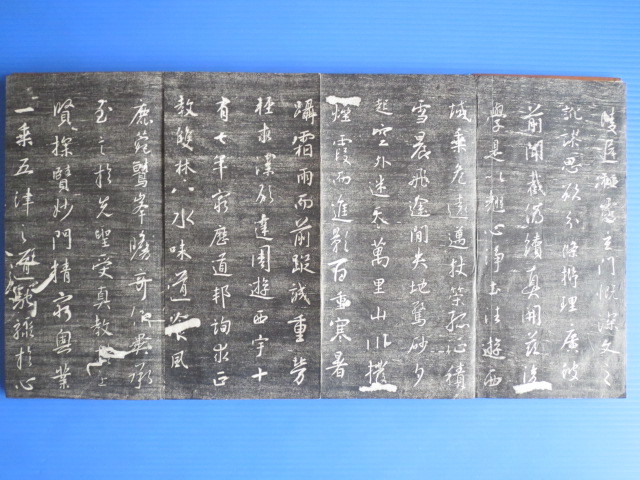 陵遲栖慮玄門慨深文之
訛謬思欲分條析理廣彼
前聞截偽續真開茲後
學是以翹心淨土法遊西
域乘危遠邁杖策孤征積
雪晨飛途間失地驚砂夕
起空外迷天萬里山川撥
煙霞而進影百重寒暑
躡霜雨而前蹤誠重勞
輕求深願達周遊西宇十
有七年窮歷道邦詢求正
教雙林八水味道飡風
鹿菀鷲峯瞻奇仰異承
至言於先聖受真教於上
賢探賾妙門精窮奧業
一乘五律之道馳驟於心